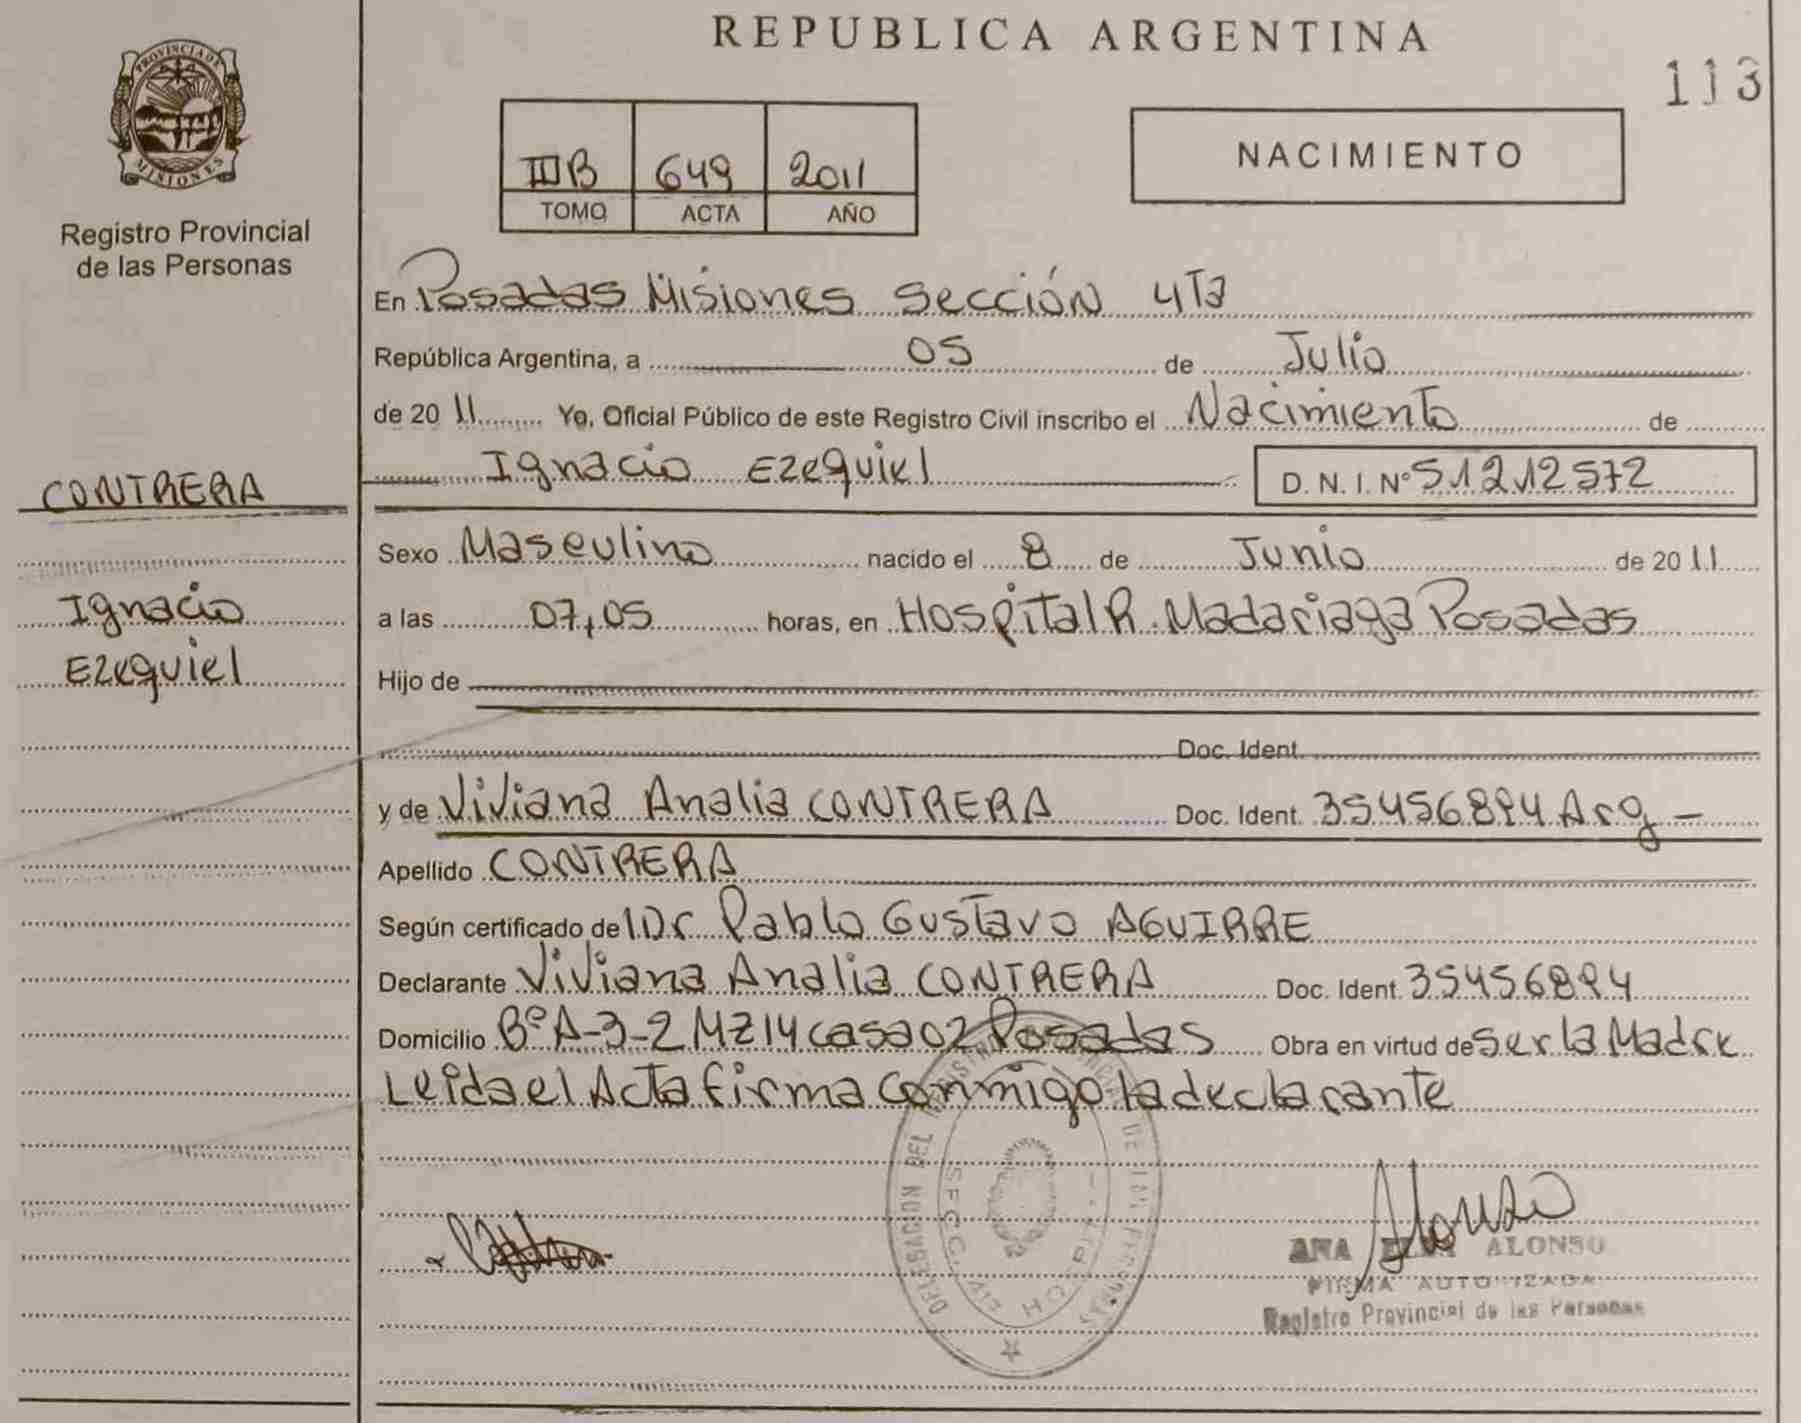 REPUBLICA ARGENTINA
113
PROVINCIA DE
MISIONES
Registro Provincial
de las Personas
IIIB 649 2011
TOMO ACTA AÑO
NACIMIENTO
En Posadas Misiones Sección 4Ta
República Argentina, a 05 de Julio
de 20 11 Yo, Oficial Público de este Registro Civil inscribo el Nacimiento de
Ignacio Ezequiel D. N. I. Nº 51212572
CONTRERA
Ignacio
Ezequiel
Sexo Masculino nacido el 8 de Junio de 20 11
a las 07,05 horas, en Hospital R. Madariaga Posadas
Hijo de
Doc. Ident.
y de Viviana Analia CONTRERA Doc. Ident. 35456894 Arg -
Apellido CONTRERA
Según certificado del Dr Pablo Gustavo AGUIRRE
Declarante Viviana Analia CONTRERA Doc. Ident. 35456894
Domicilio Bº A-3-2 MZ 14 casa 02 Posadas Obra en virtud de ser la Madre
Leida el Acta firma conmigo la declarante
DELEGACION DEL DE LAS PERSONAS
SECC.
Alonso
ANA ALONSO
FIRMA AUTORIZADA
Registro Provincial de las Personas